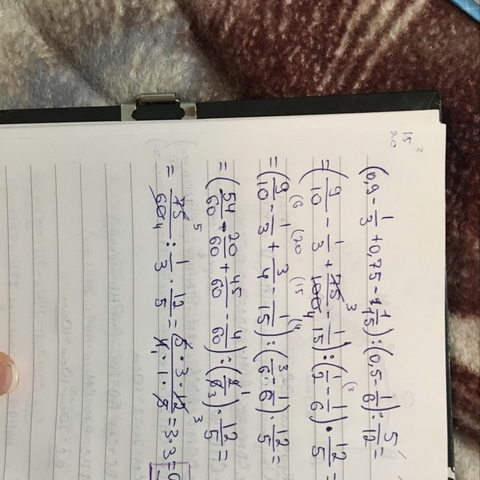 (0,9 - 1/3 + 0,75 - 1/15) : (0,5 - 1/6) : 5/12 =
= (9/10 - 1/3 + 75/100 - 1/15) : (1/2 - 1/6) · 12/5 =
= (9/10 - 1/3 + 3/4 - 1/15) : (3/6 - 1/6) · 12/5 =
= (54/60 - 20/60 + 45/60 - 4/60) : (2/6) · 12/5 =
= 75/60 : 1/3 · 12/5 = 5 · 3 · 12 / 4 · 1 · 5 = 3 · 3 =